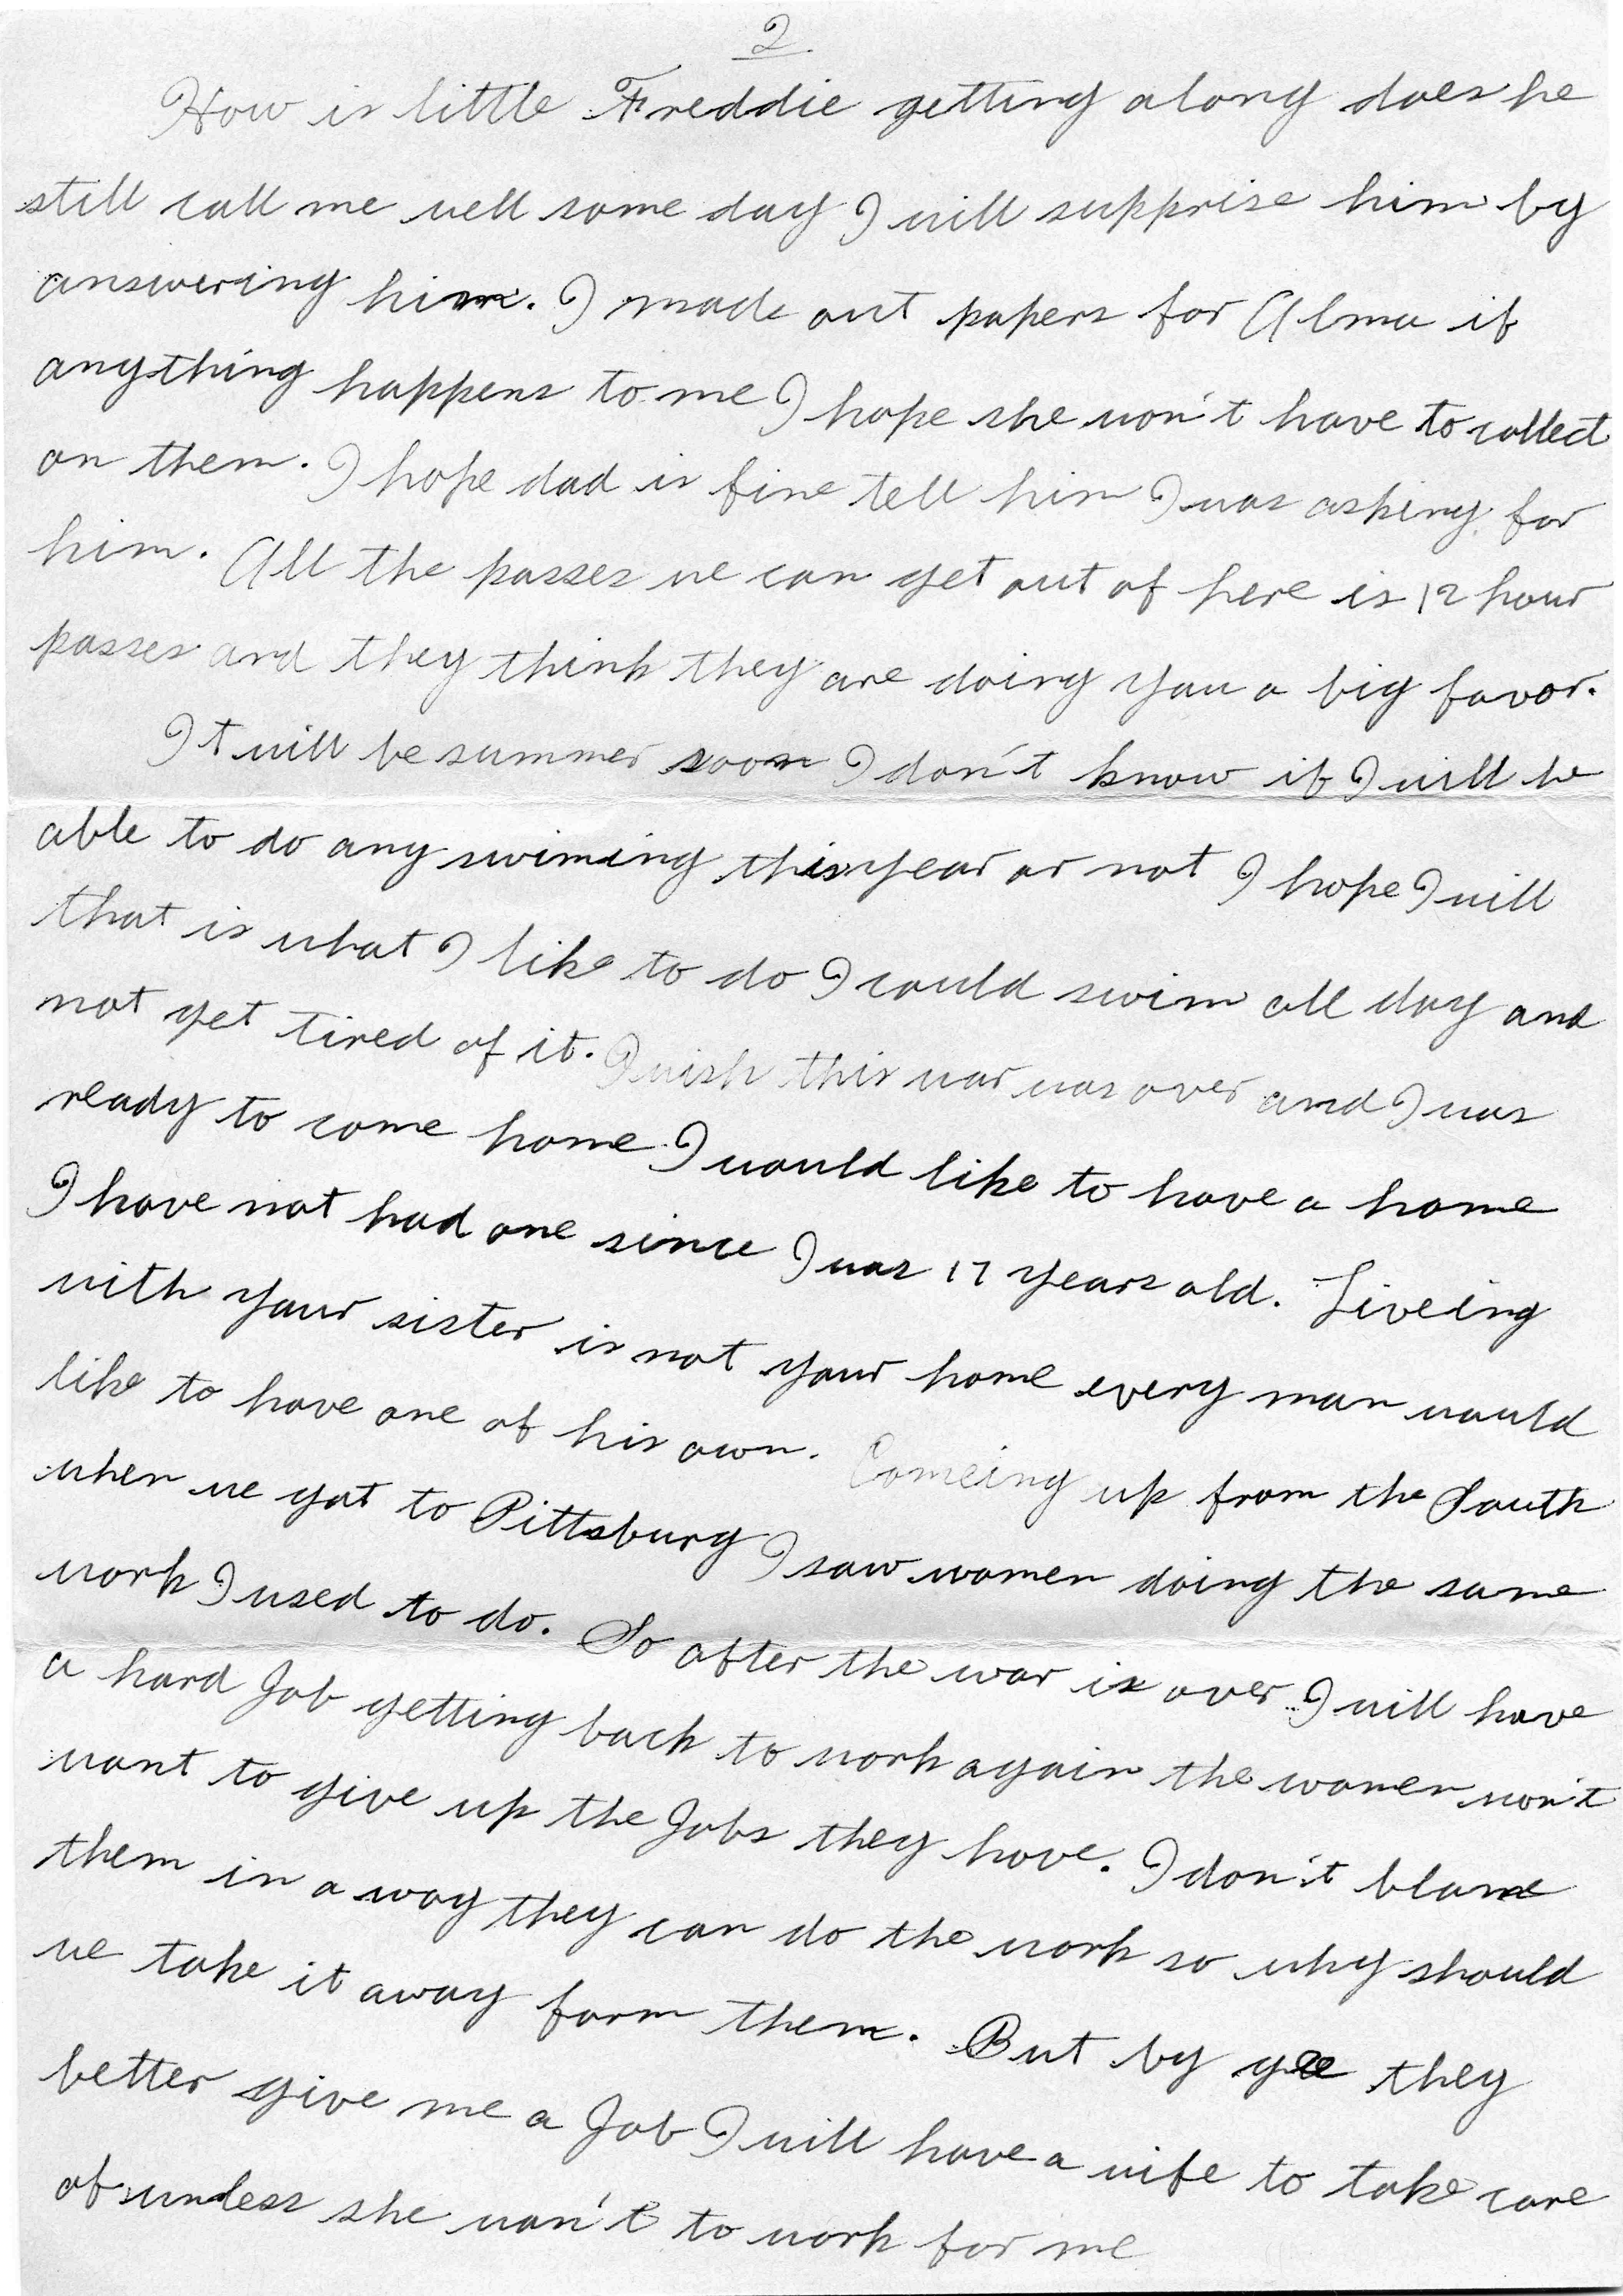 2.
How is little Freddie getting along does he
still call me well some day I will supprise him by
answering him. I made out papers for Alma if
anything happens to me I hope she won't have to collect
on them. I hope dad is fine tell him I was asking for
him. All the passes we can get out of here is 12 hour
passes and they think they are doing you a big favor.
It will be summer soon I don't know if I will be
able to do any swiming this year or not I hope I will
that is what I like to do I could swim all day and
not get tired of it. I wish this war was over and I was
ready to come home I would like to have a home
I have not had one since I was 17 years old. Liveing
with your sister is not your home every man would
like to have one of his own. Comeing up from the South
when we got to Pittsburg I saw women doing the same
work I used to do. So after the war is over I will have
a hard Job getting back to work again the women won't
want to give up the Jobs they have. I don't blame
them in a way they can do the work so why should
we take it away form them. But by gee they
better give me a Job I will have a wife to take care
of unless she wan't to work for me